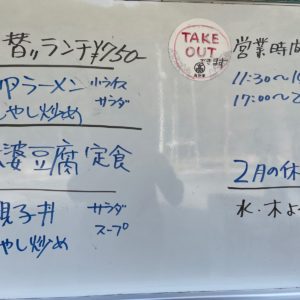 替ﾘランチ¥750-
ラーメン 小ライス
サラダ
もやし炒め
婆豆腐定食
親子丼 サラダ
スープ
もやし炒め
TAKE
OUT
できます
営業時間
11:30~1
17:00~2
2月の休
水・木よ